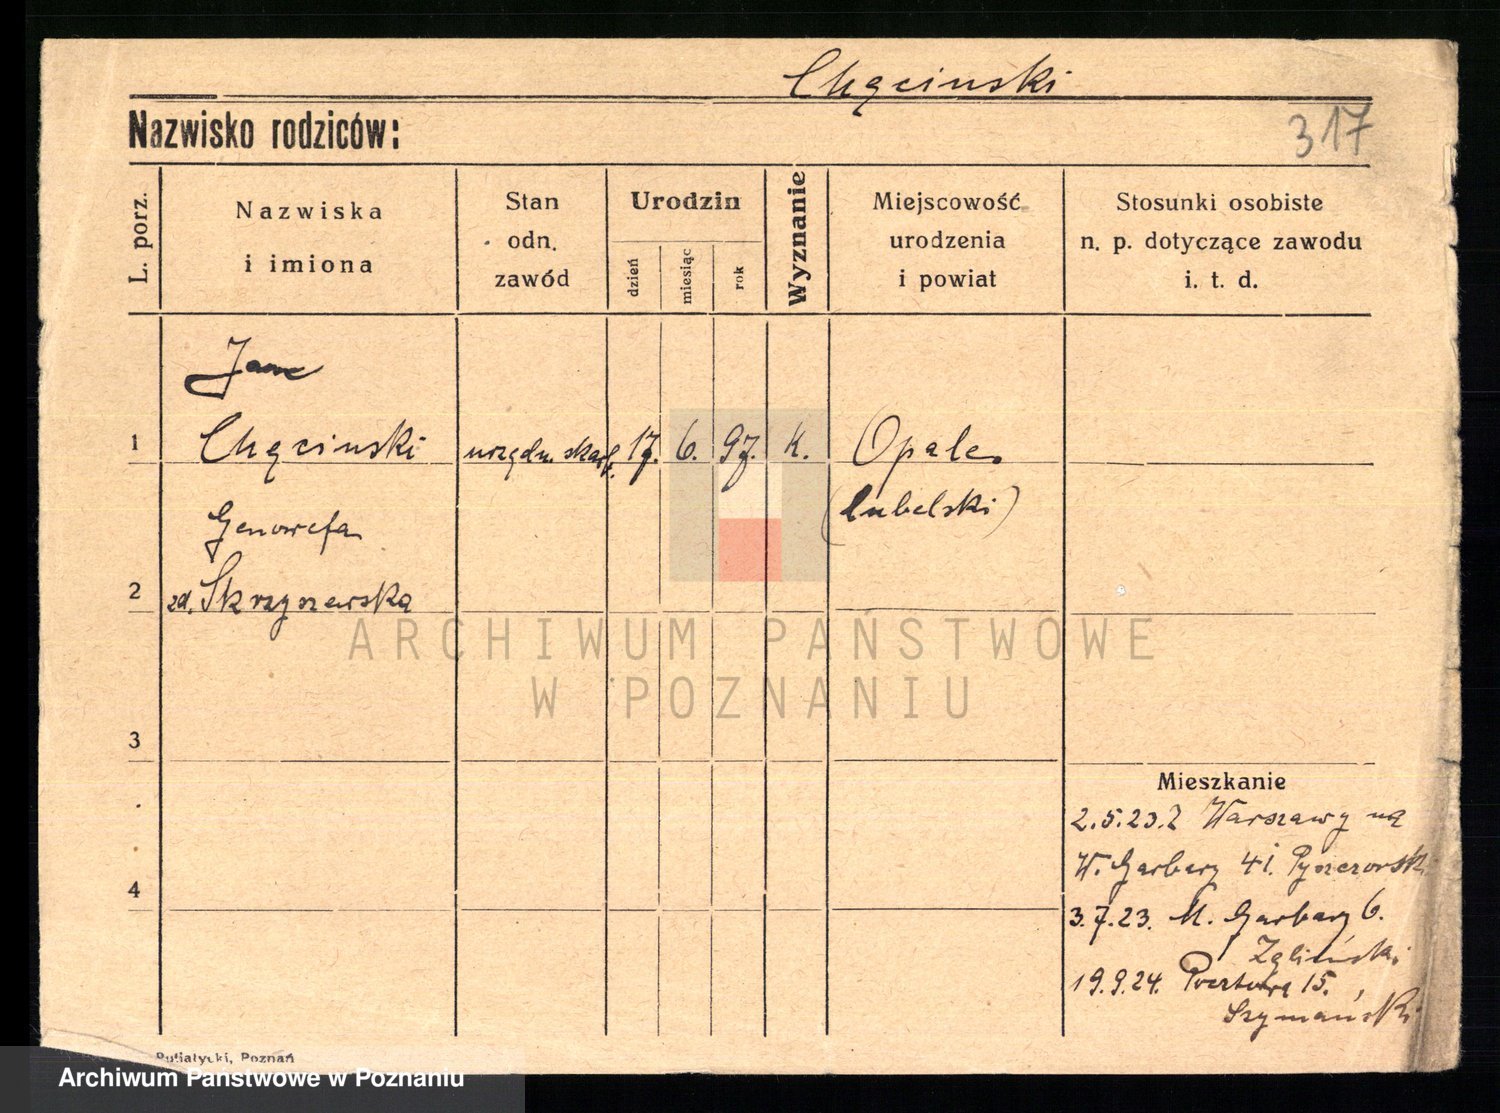 Chęcinski
Nazwisko rodziców:
317
L. porz.
Nazwiska
i imiona
Stan
odn.
zawód
Urodzin
dzień
miesiąc
rok
Wyznanie
Miejscowość
urodzenia
i powiat
Stosunki osobiste
n. p. dotyczące zawodu
i. t. d.
Jan
1 Chęcinski urzędn. skarb. 17. 6. 97. k. Opole
(lubelski)
Genowefa
2 zd. Skrzyszewska
ARCHIWUM PAŃSTWOWE
W POZNANIU
3
Mieszkanie
2.5.23. z Warszawy na
4 W. Garbary 41.
3.7.23. M. Garbary 6.
Zgliński
19.9.24. Pocztowa 15.
Szymański
Putiatycki, Poznań
Archiwum Państwowe w Poznaniu